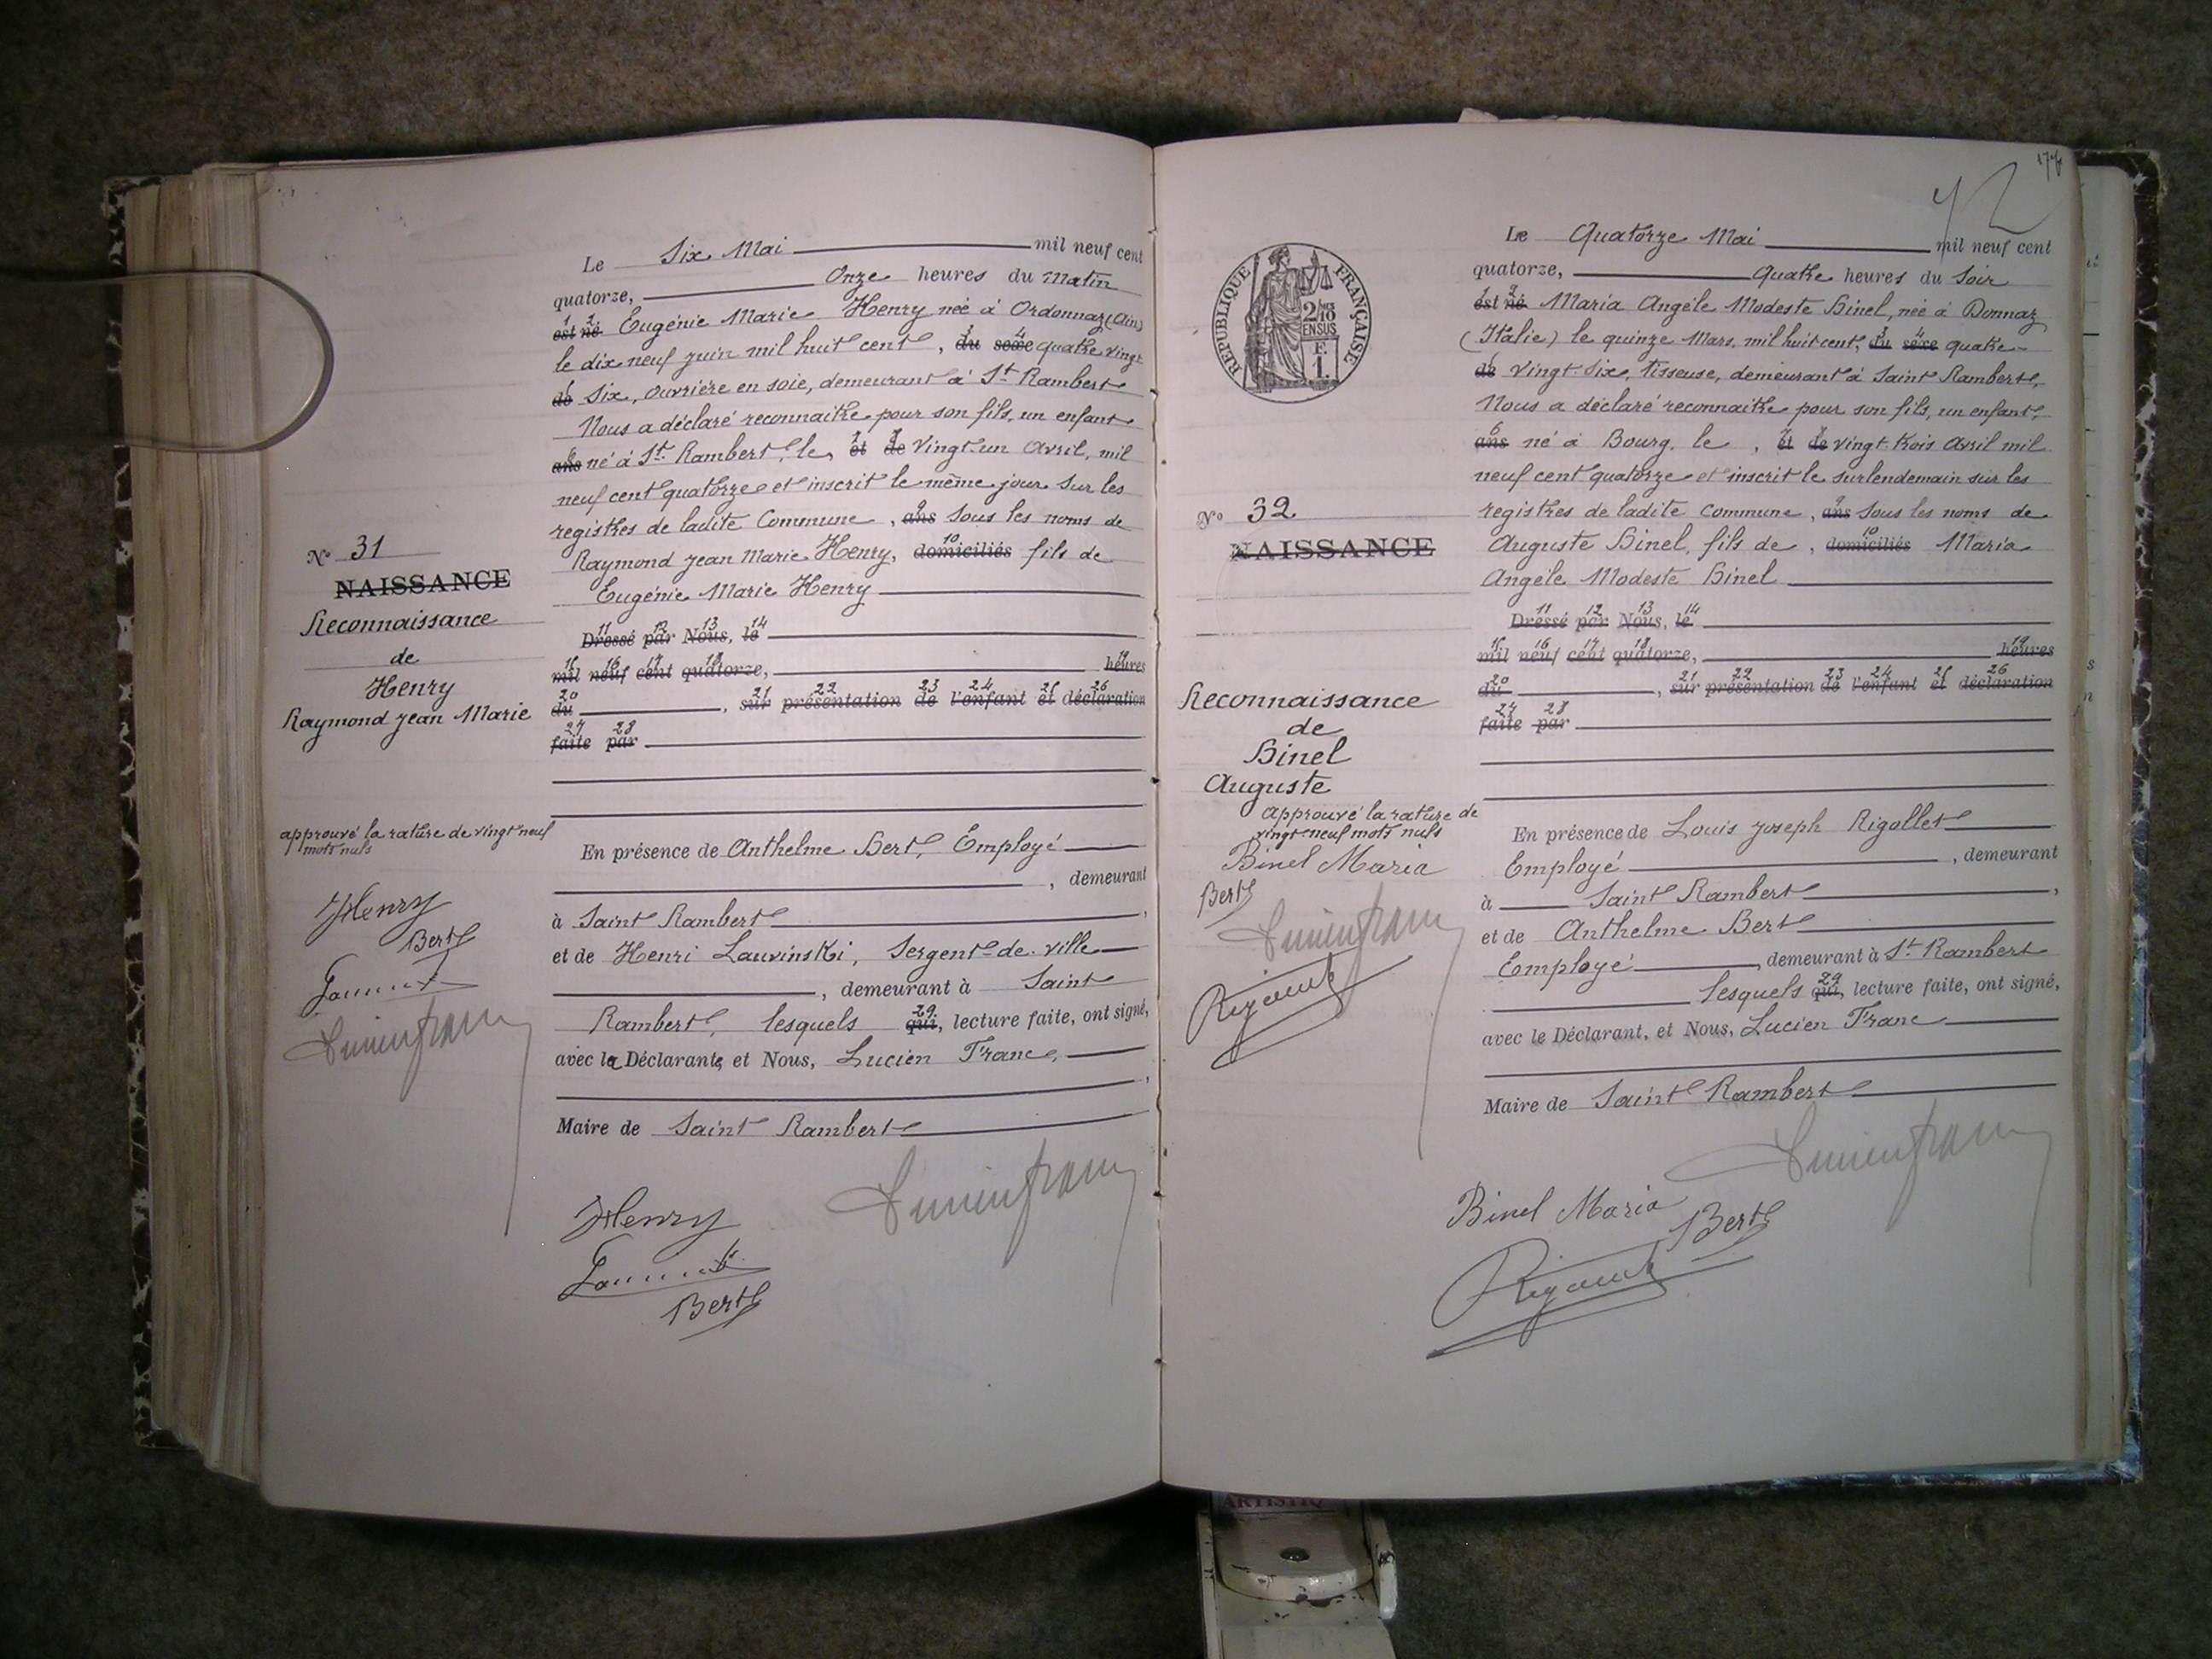 Le Six Mai mil neuf cent
quatorze, Onze heures du Matin
1 2
est né Eugénie Marie Henry née à Ordonnaz (Ain)
3 4
le dix neuf juin mil huit cent, du sexe quatre vingt
5
de Six, ouvrière en soie, demeurant à St Rambert
Nous a déclaré reconnaitre pour son fils, un enfant
6 7 8
ans né à St. Rambert, le, et de Vingt-un Avril, mil
neuf cent quatorze et inscrit le même jour sur les
9
registres de ladite Commune, ans sous les noms de
10
Raymond Jean Marie Henry, domiciliés fils de
Eugénie Marie Henry
11 12 13 14
Dressé par Nous, le
15 16 17 18 19
mil neuf cent quatorze, heures
20 21 22 23 24 25 26
du , sur présentation de l'enfant et déclaration
27 28
faite par
En présence de Anthelme Bert, Employé
, demeurant
à Saint Rambert ,
et de Henri Lauvinski, Sergent-de-ville
, demeurant à Saint
29
Rambert, lesquels qui, lecture faite, ont signé,
avec la Déclarante, et Nous, Lucien Franc,
,
Maire de Saint Rambert
Henry
Bert
No 31
NAISSANCE
Reconnaissance
de
Henry
Raymond Jean Marie
approuvé la rature de vingt neuf
mots nuls
Henry
Bert
42
Le Quatorze Mai mil neuf cent
quatorze, Quatre heures du Soir
1 2
est né Maria Angèle Modeste Binel, née à Donnaz
3 4
(Italie) le quinze Mars, mil huit cent, du sexe quatre-
5
de vingt-Six, tisseuse, demeurant à Saint Rambert,
Nous a déclaré reconnaitre pour son fils, un enfant,
6 7 8
ans né à Bourg, le , et de vingt-trois Avril mil
neuf cent quatorze et inscrit le surlendemain sur les
9
registres de ladite commune, ans sous les noms de
10
Auguste Binel, fils de , domiciliés Maria
Angèle Modeste Binel
11 12 13 14
Dressé par Nous, le
15 16 17 18 19
mil neuf cent quatorze, heures
20 21 22 23 24 25 26
du , sur présentation de l'enfant et déclaration
27 28
faite par
En présence de Louis Joseph Rigollet
Employé , demeurant
à Saint Rambert ,
et de Anthelme Bert
Employé , demeurant à St. Rambert
29
lesquels qui, lecture faite, ont signé,
avec le Déclarant, et Nous, Lucien Franc
Maire de Saint Rambert
Binel Maria
Bert
RÉPUBLIQUE FRANÇAISE
2/10
EN SUS
F.
1.
No 32
NAISSANCE
Reconnaissance
de
Binel
Auguste
approuvé la rature de
vingt-neuf mots nuls
Binel Maria
Bert
ARTISTIQ